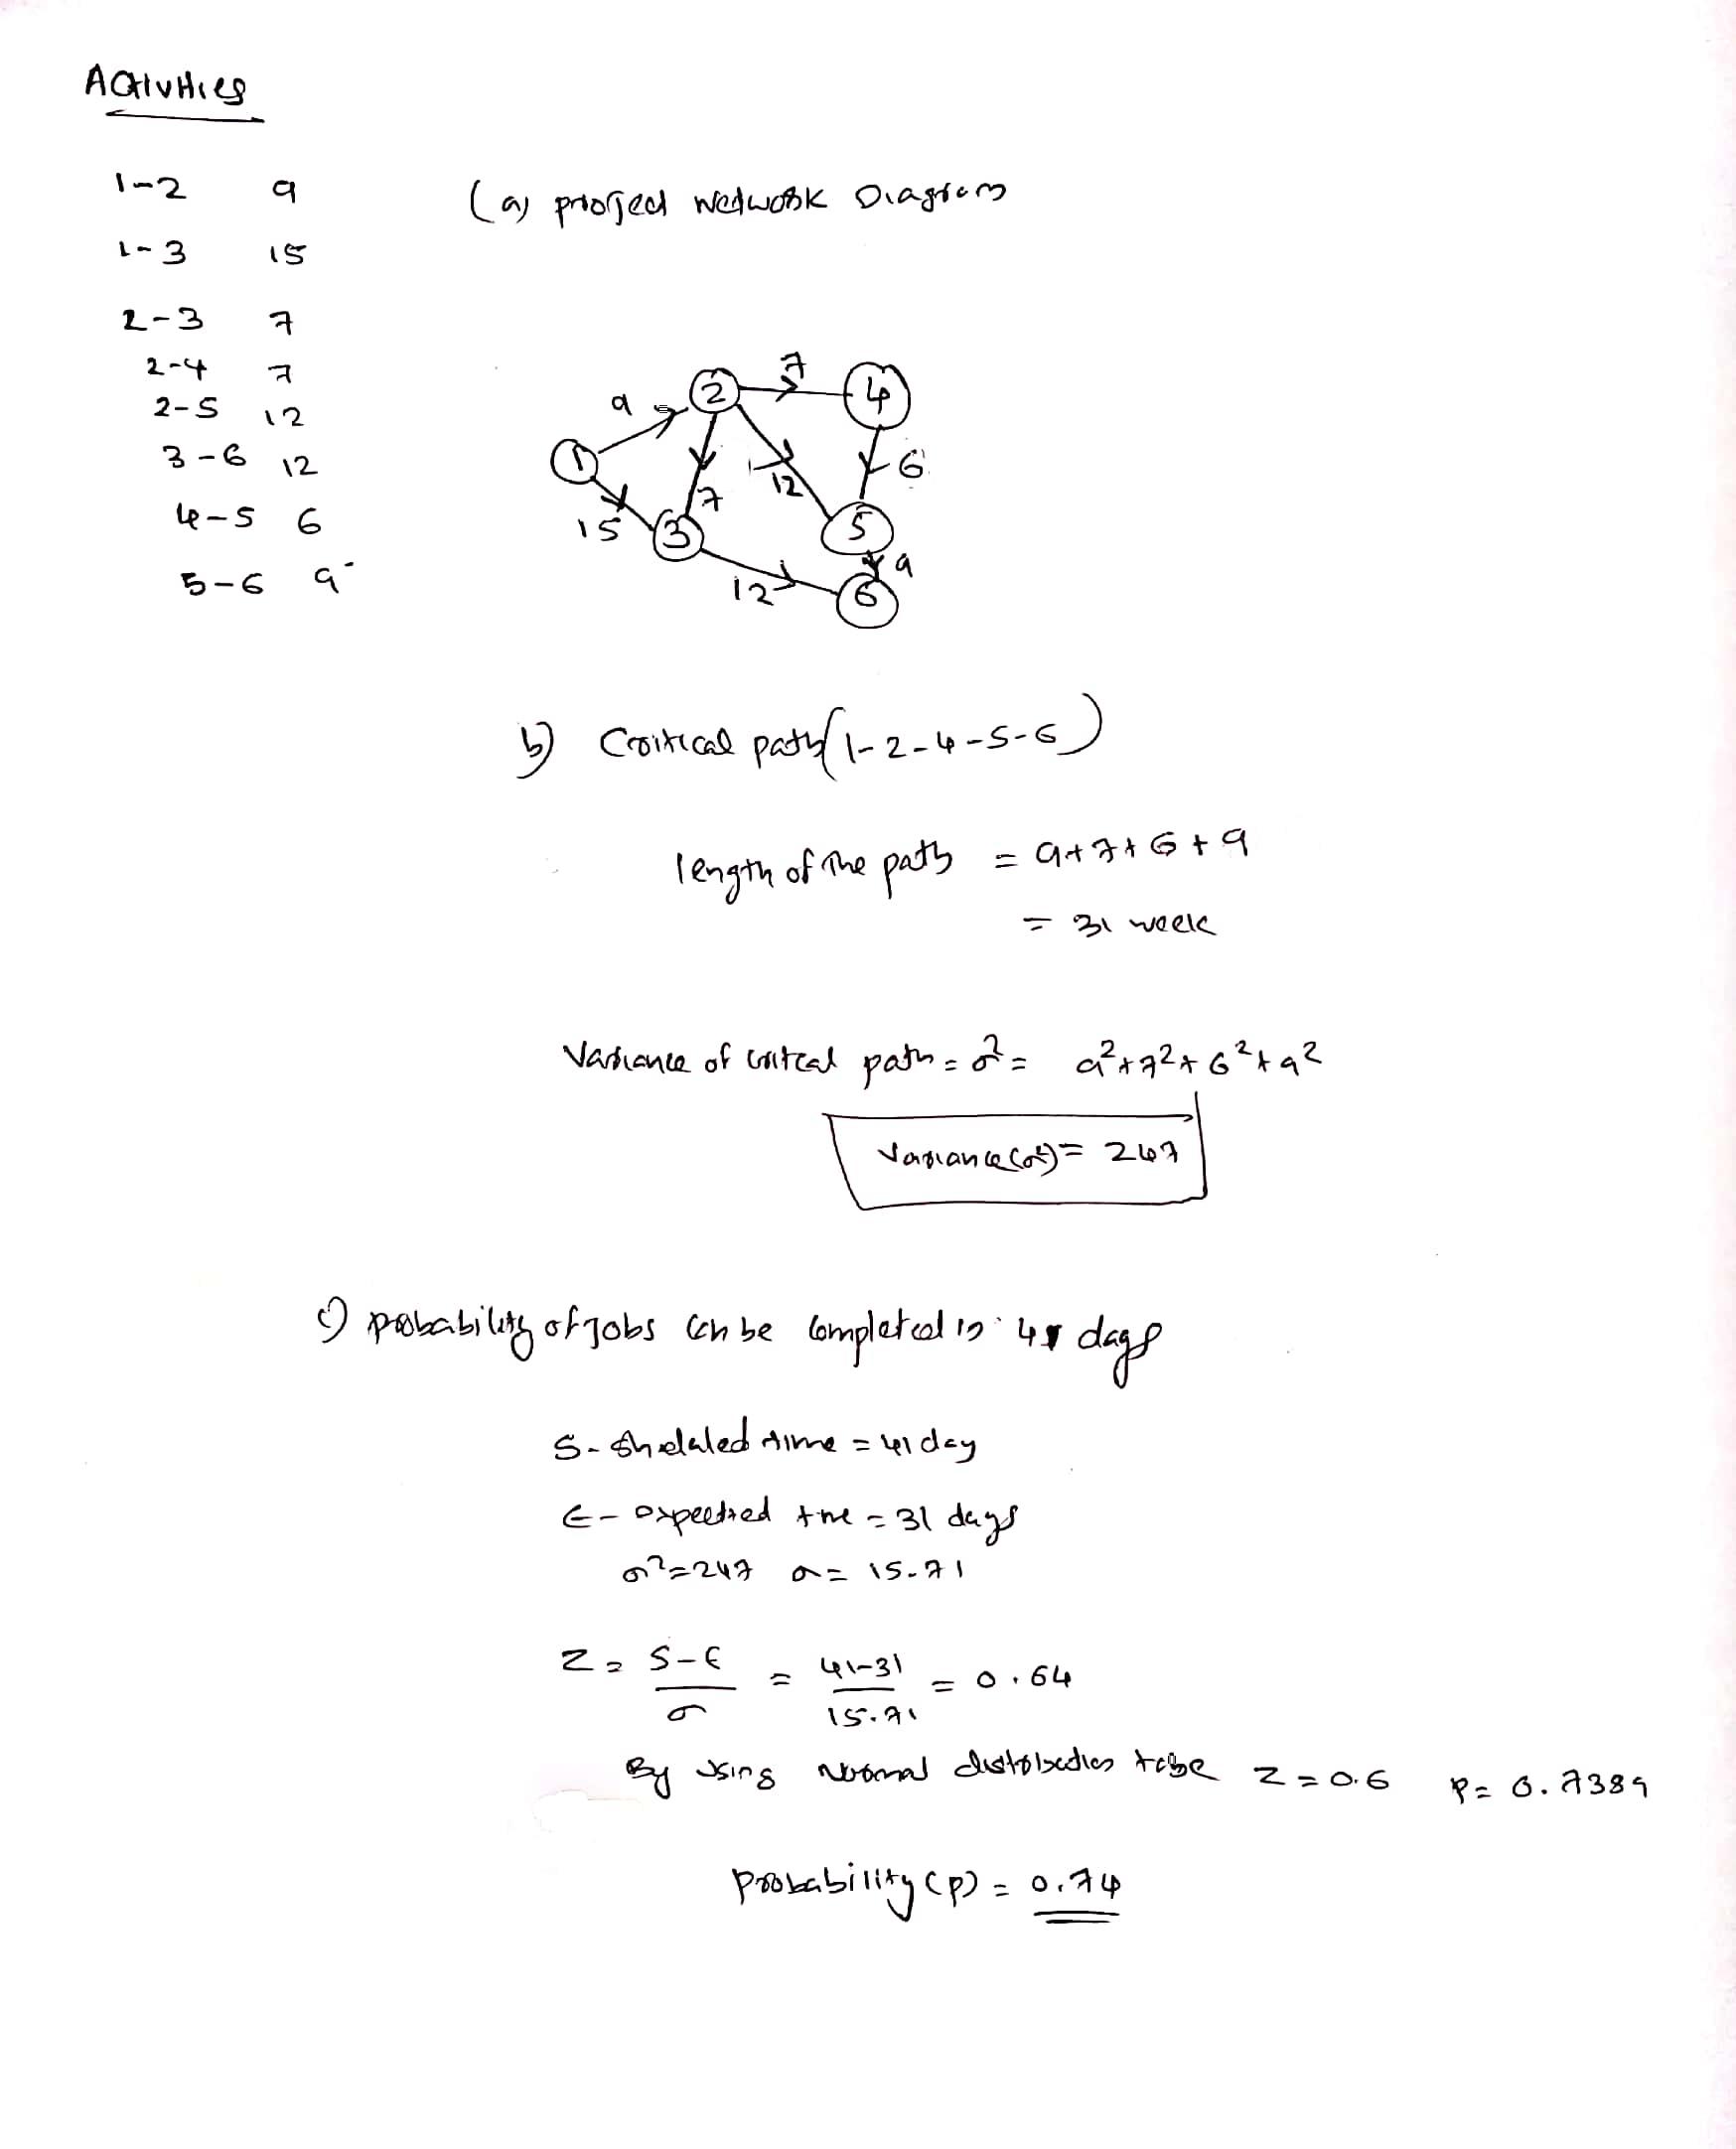 Activities
1-2 9
(a) project Network Diagram
1-3 15
2-3 7
2-4 7
2-5 12
3-6 12
4-5 6
5-6 9
7
9 2 4
1 6
12
7
15 3 5
9
12 6
b) Critical path (1-2-4-5-6)
length of the path = 9+7+6+9
= 31 week
Variance of critcal path = σ² = 9²+7²+6²+9²
Variance(σ²) = 247
c) probability of jobs can be completed in 41 days
S - Shedaled time = 41 day
E - expected time = 31 days
σ²=247 σ= 15.71
Z = S-E / σ = 41-31 / 15.71 = 0.64
By using Normal distribution table Z=0.6 P= 0.7389
probability (p) = 0.74